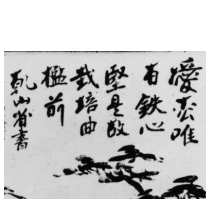 愛松唯
有鉄心
堅是故
栽培曲
檻前
乾山省書